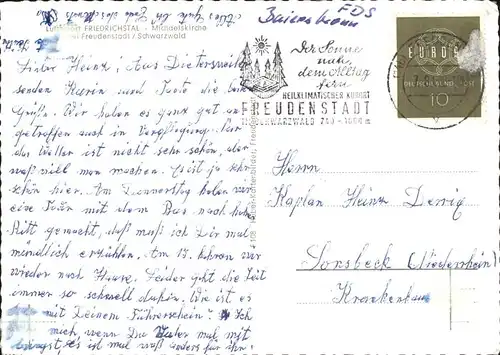 Alles Gute
Baiersbronn FDS
Luftkurort FRIEDRICHSTAL - Michaelskirche
bei Freudenstadt / Schwarzwald
Lieber Heinz! Aus Dietersweiler
senden Karin und Tante die besten
Grüße. Wir haben es ganz gut an-
getroffen auch in Verpflegung. Nur
das Wetter ist nicht sehr schön, aber
was will man machen. Es ist ja sehr
schön hier. Am Donnerstag haben wir
eine Tour mit dem Bus nach
gemacht, das muß ich Dir mal
mündlich erzählen. Am 17. fahren wir
wieder nach Hause. Leider geht die Zeit
immer so schnell dahin. Wie ist es
mit Deinem Führerschein? Ich
mich, wenn Du Vater mal mit
es ist mal was anders für ihn.
Der Sonne
nah
dem Alltag
fern
HEILKLIMATISCHER KURORT
FREUDENSTADT
SCHWARZWALD 740 - 1000 m
EUROPA
DEUTSCHE BUNDESPOST
10
Herrn
Kaplan Heinz Derrig
Sonsbeck (Niederrhein)
Krankenhaus